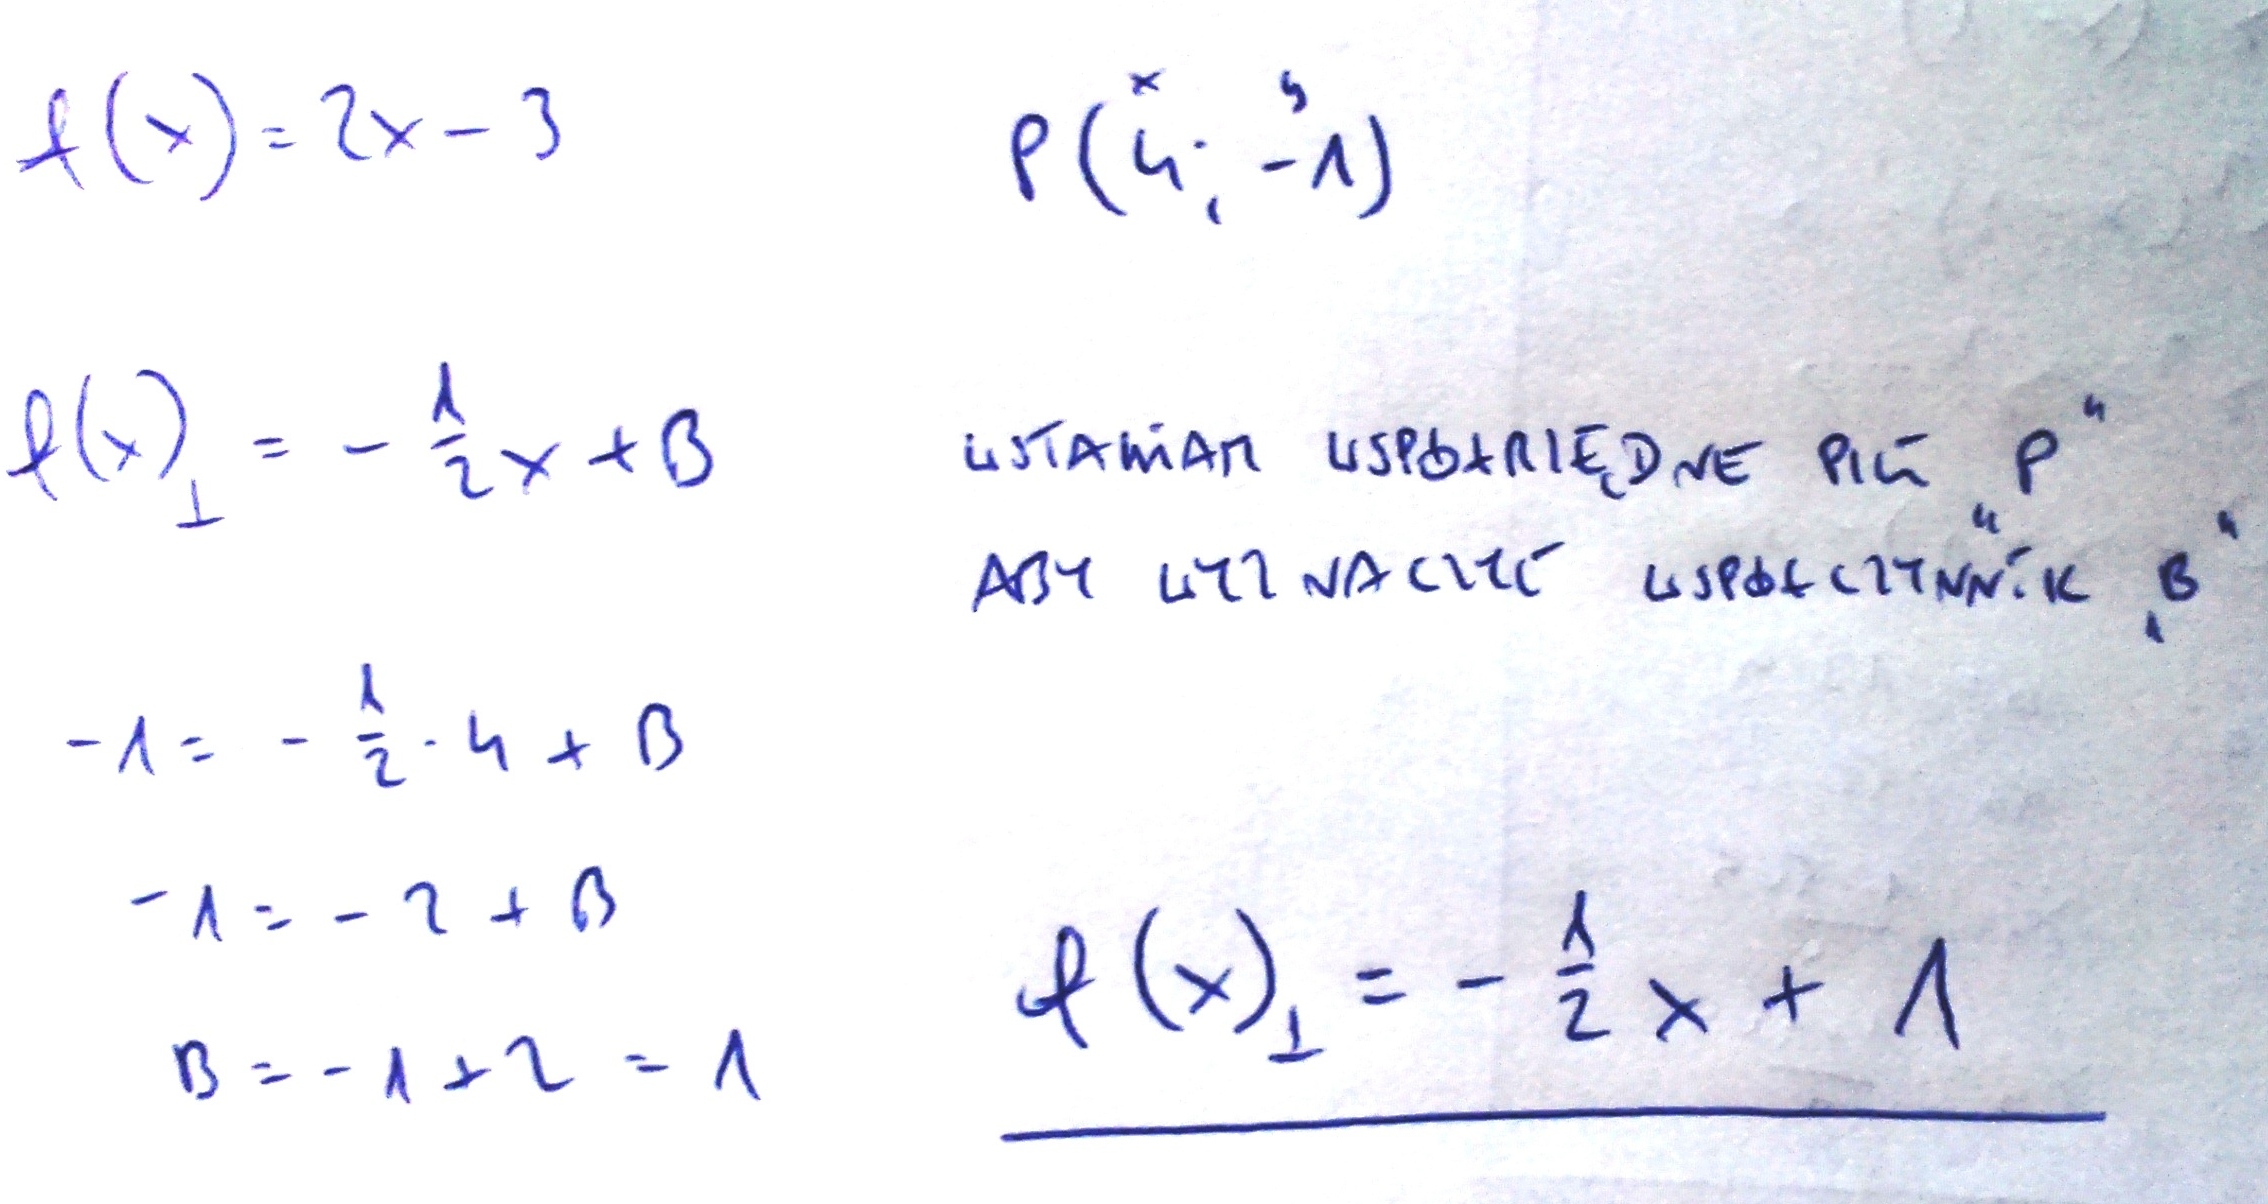 f(x) = 2x - 3
x y
P(4; -1)
f(x)⊥ = - 1/2 x + B
WSTAWIAM WSPÓŁRZĘDNE PKT „P”
ABY WYZNACZYĆ WSPÓŁCZYNNIK „B”
-1 = - 1/2 · 4 + B
-1 = - 2 + B
B = - 1 + 2 = 1
f(x)⊥ = - 1/2 x + 1